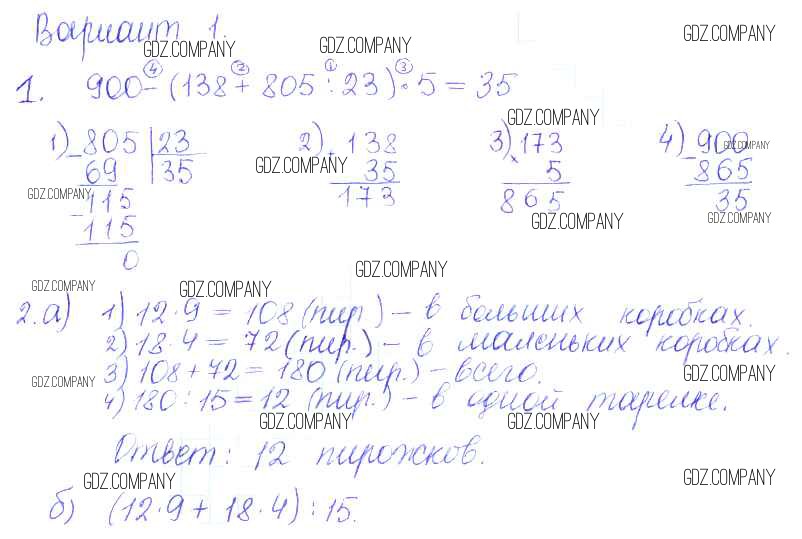 Вариант 1.
GDZ.COMPANY GDZ.COMPANY GDZ.COMPANY
④ ② ① ③
1. 900 - (138 + 805 : 23) · 5 = 35
GDZ.COMPANY
1) 805 | 23 2) 138 3) 173 4) 900
GDZ.COMPANY
- 69 | 35 + 35 × 5 - 865
GDZ.COMPANY
GDZ.COMPANY
115 173 865 35
- 115 GDZ.COMPANY GDZ.COMPANY
0
GDZ.COMPANY
GDZ.COMPANY GDZ.COMPANY
2. а) 1) 12 · 9 = 108 (пир.) - в больших коробках.
2) 18 · 4 = 72 (пир.) - в маленьких коробках.
3) 108 + 72 = 180 (пир.) - всего.
GDZ.COMPANY GDZ.COMPANY
4) 180 : 15 = 12 (пир.) - в одной тарелке.
GDZ.COMPANY GDZ.COMPANY
Ответ: 12 пирожков.
GDZ.COMPANY GDZ.COMPANY
б) (12 · 9 + 18 · 4) : 15.